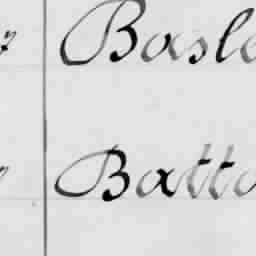 Basle
Batto